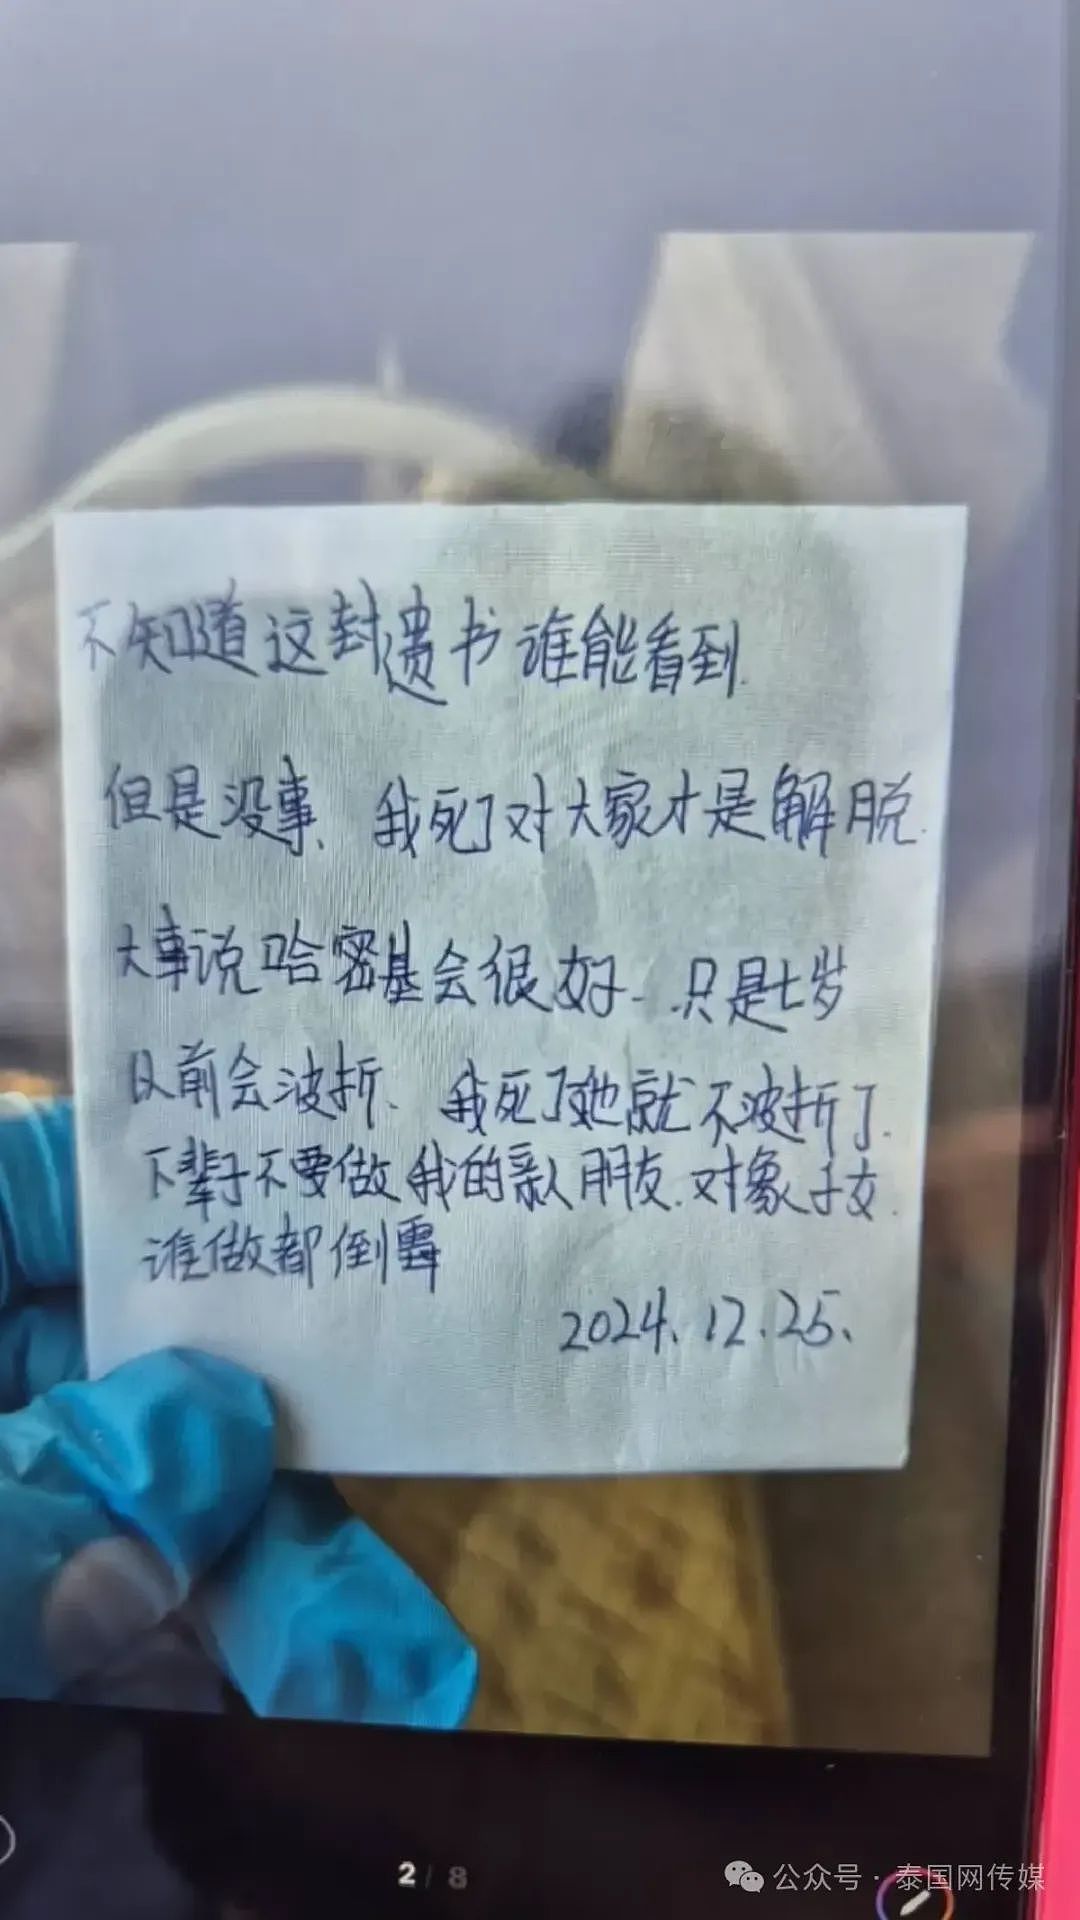 不知道这封遗书谁能看到.
但是没事、我死了对大家才是解脱.
大事说哈密基会很好.只是七岁
以前会波折、我死了她就不波折了.
下辈子不要做我的亲人朋友.对象子女.
谁做都倒霉
2024.12.25、
2 / 8
公众号·泰国网传媒